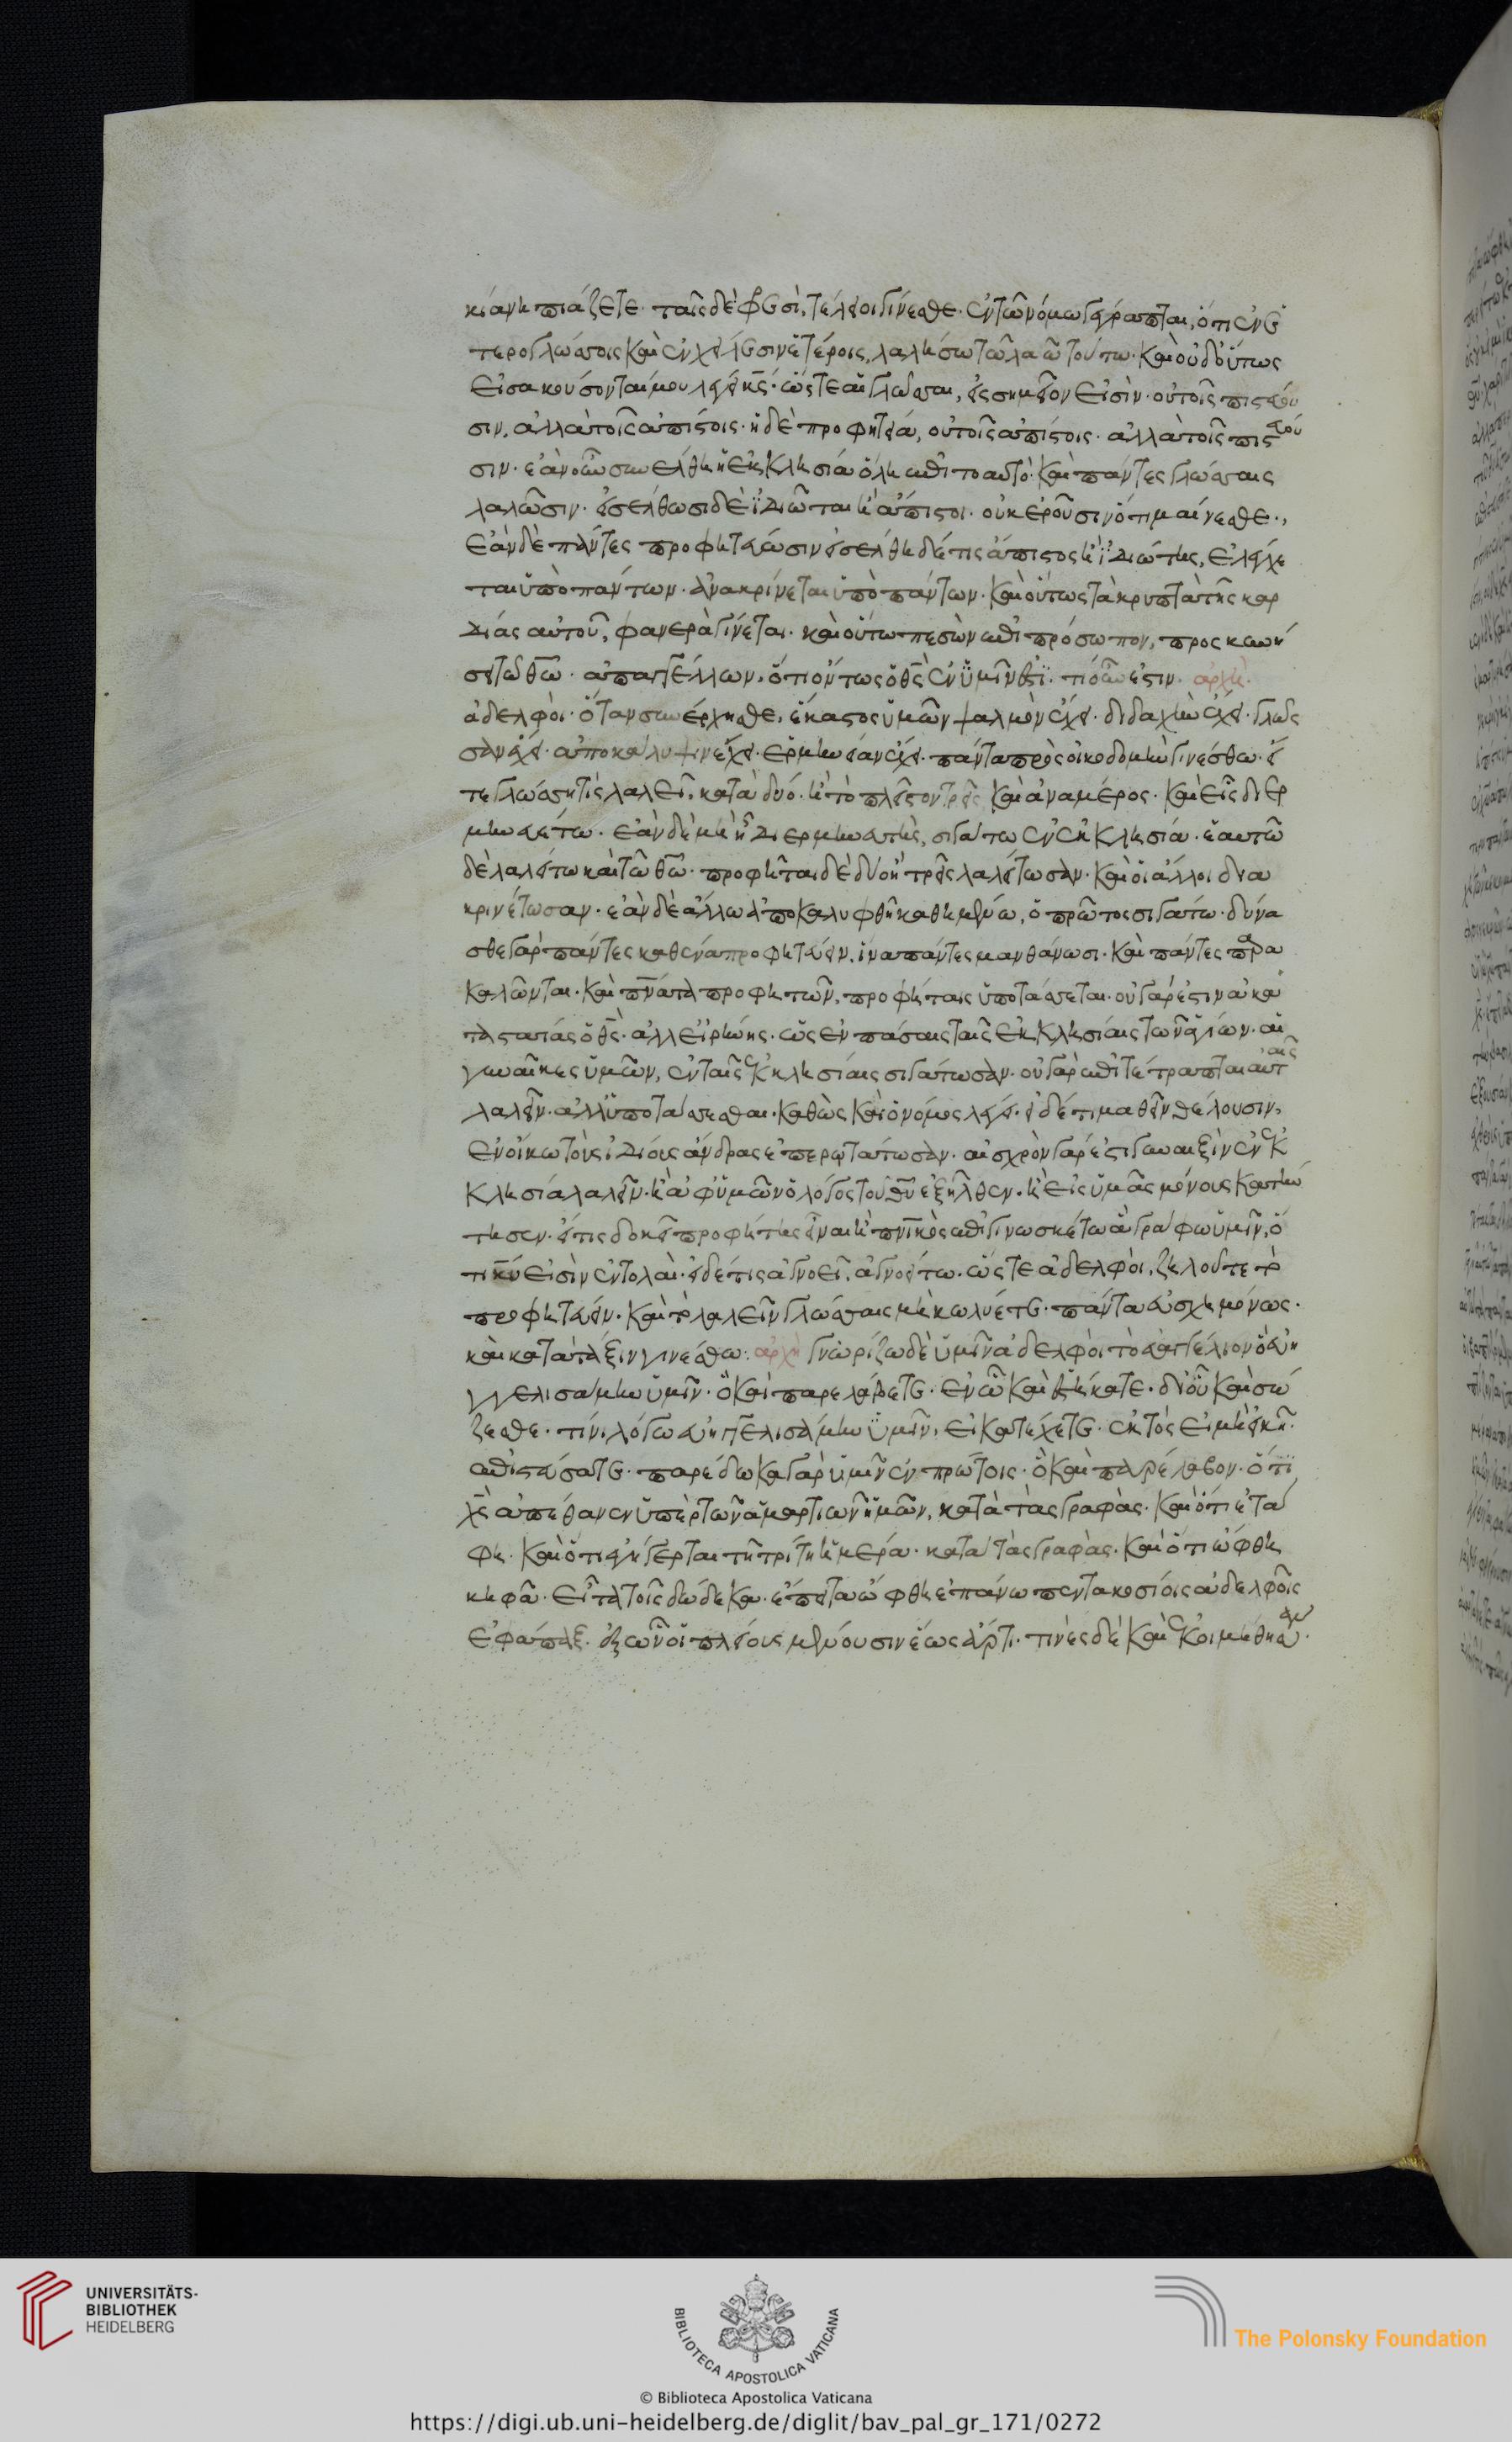 κία νηπιάζετε· ταῖς δὲ φρεσὶ, τέλειοι γίνεσθε· ἐν τῶ νόμω γέγραπται, ὅτι ἐν ἑ
τερογλώσσοις καὶ ἐν χείλεσιν ἑτέροις, λαλήσω τῶ λαῶ τούτω· καὶ οὐδ' οὕτως
εἰσακούσονταί μου λέγει κς̄· ὥστε αἱ γλῶσσαι, εἰς σημεῖον εἰσὶν· οὐ τοῖς πιστεύου
σιν, ἀλλὰ τοῖς ἀπίστοις· ἡ δὲ προφητεία, οὐ τοῖς ἀπίστοις· ἀλλὰ τοῖς πιστεύου
σιν· ἐὰν οὖν συνέλθη ἡ ἐκκλησία ὅλη ἐπὶ τὸ αὐτό· καὶ πάντες γλώσσαις
λαλῶσιν· εἰσέλθωσι δὲ ἰδιῶται ἢ ἄπιστοι· οὐκ ἐροῦσιν ὅτι μαίνεσθε·,
ἐὰν δὲ πάντες προφητεύωσιν εἰσέλθη δέ τις ἄπιστος ἢ ἰδιώτης, ἐλέγχε
ται ὑπὸ πάντων· ἀνακρίνεται ὑπὸ πάντων· καὶ οὕτως τὰ κρυπτὰ τῆς καρ
δίας αὐτοῦ, φανερὰ γίνεται· καὶ οὕτω πεσὼν ἐπὶ πρόσωπον, προσκυνή
σει τῶ θῶ̄· ἀπαγγέλλων, ὅτι ὄντως ὁ θς̄ ἐν ὑμῖν ἐστι· τί οὖν ἐστιν· ἀρχὴ·
ἀδελφοὶ· ὅταν συνέρχησθε, ἕκαστος ὑμῶν ψαλμὸν ἔχει· διδαχὴν ἔχει· γλῶσ
σαν ἔχει· ἀποκάλυψιν ἔχει· ἑρμηνείαν ἔχει· πάντα πρὸς οἰκοδομὴν γινέσθω· εἴ
τε γλώσση τίς λαλεῖ, κατὰ δυό· ἢ τὸ πλεῖστον τρεῖς καὶ ἀναμέρος· καὶ εἷς διερ
μηνευέτω· ἐὰν δὲ μὴ ἦ διερμηνευτὴς, σιγάτω ἐν ἐκκλησία· ἑαυτῶ
δὲ λαλείτω καὶ τῶ θῶ̄· προφῆται δὲ δύο ἢ τρεῖς λαλείτωσαν· καὶ οἱ ἄλλοι δια
κρινέτωσαν· ἐὰν δὲ ἄλλω ἀποκαλυφθῆ καθημένω, ὁ πρῶτος σιγάτω· δύνα
σθε γὰρ πάντες καθ' ἕνα προφητεύειν, ἵνα πάντες μανθάνωσι· καὶ πάντες παρα
καλῶνται· καὶ πνᾱτα προφητῶν, προφήταις ὑποτάσσεται· οὐ γάρ ἐστιν ἀκα
ταστασίας ὁ θς̄· ἀλλ' εἰρήνης· ὡς ἐν πάσαις ταῖς ἐκκλησίαις τῶν ἁγίων· αἱ
γυναῖκες ὑμῶν, ἐν ταῖς ἐκκλησίαις σιγάτωσαν· οὐ γὰρ ἐπιτέτραπται αὐταῖς
λαλεῖν· ἀλλ' ὑποτάσσεσθαι· καθὼς καὶ ὁ νόμος λέγει· εἰ δέ τι μαθεῖν θέλουσιν,
ἐν οἴκω τοὺς ἰδίους ἄνδρας ἐπερωτάτωσαν· αἰσχρὸν γάρ ἐστι γυναιξὶν ἐν ἐκ
κλησία λαλεῖν· ἢ ἀφ' ὑμῶν ὁ λόγος τοῦ θῡ ἐξῆλθεν· ἢ εἰς ὑμᾶς μόνους κατήν
τησεν· εἴ τις δοκεῖ προφήτης εἶναι ἢ πνῑκὸς ἐπιγινωσκέτω ἃ γράφω ὑμῖν, ὅ
τι κῡ εἰσὶν ἐντολαὶ· εἰ δέ τις ἀγνοεῖ, ἀγνοείτω· ὥστε ἀδελφοὶ, ζηλοῦτε τὸ
προφητεύειν· καὶ τὸ λαλεῖν γλώσσαις μὴ κωλύετε· πάντα εὐσχημόνως·
καὶ κατὰ τάξιν γινέσθω: ἀρχὴ γνωρίζω δὲ ὑμῖν ἀδελφοὶ τὸ εὐαγγέλιον ὃ εὐη
γγελισάμην ὑμῖν· ὃ καὶ παρελάβετε· ἐν ὧ καὶ ἑστήκατε· δι' οὗ καὶ σώ
ζεσθε· τίνι λόγω εὐηγγελισάμην ὑμῖν, εἰ κατέχετε· ἐκτὸς εἰ μὴ εἰκῆ
ἐπιστεύσατε· παρέδωκα γὰρ ὑμῖν ἐν πρώτοις· ὃ καὶ παρέλαβον· ὅτι
χς̄ ἀπέθανεν ὑπὲρ τῶν ἁμαρτιῶν ἡμῶν, κατὰ τὰς γραφὰς· καὶ ὅτι ἐτά
φη· καὶ ὅτι ἐγήγερται τῆ τρίτη ἡμέρα· κατὰ τὰς γραφὰς· καὶ ὅτι ὤφθη
κηφᾶ· εἶτα τοῖς δώδεκα· ἔπειτα ὤφθη ἐπάνω πεντακοσίοις ἀδελφοῖς
ἐφάπαξ· ἐξ ὧν οἱ πλείους μένουσιν ἕως ἄρτι· τινὲς δὲ καὶ ἐκοιμήθησαν·
UNIVERSITÄTS-
BIBLIOTHEK
HEIDELBERG
BIBLIOTECA APOSTOLICA VATICANA
The Polonsky Foundation
© Biblioteca Apostolica Vaticana
https://digi.ub.uni-heidelberg.de/diglit/bav_pal_gr_171/0272